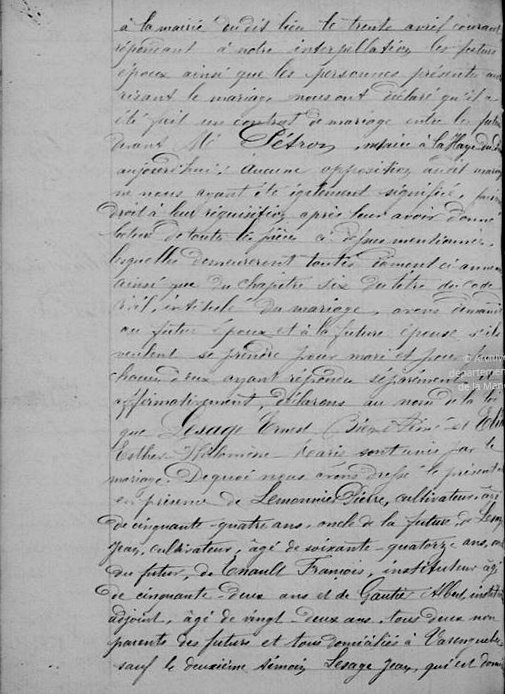 à la mairie dudit lieu le trente avril courant
répondant à notre interpellation les futurs
époux ainsi que les personnes présentes au
risant le mariage nous ont déclaré qu'il a
été fait un contrat de mariage entre les futurs
devant Me Pétron, notaire à la Haye du
aujourd'hui; aucune opposition audit mariage
ne nous ayant été également signifiée, fais
droit à leur réquisition, après leur avoir donné
lecture de toutes les pièces ci-dessus mentionnées
lesquelles demeureront toutes ci-anne
ainsi que du chapitre six du titre du Code
civil, intitulé du mariage, avons demandé
au futur époux et à la future épouse s'ils
veulent se prendre pour mari et pour
chacun d'eux ayant répondu séparément et
affirmativement, déclarons au nom de la loi
que Lesage Ernest Bien Aimé et
Esther Philomène sont unis par le
mariage. De quoi nous avons dressé le présent
en présence de Lemonnier Pierre, cultivateur, âgé
de cinquante-quatre ans, oncle de la future, de Lesage
Jean, cultivateur, âgé de soixante-quatorze ans,
du futur, de Enault François, instituteur âgé
de cinquante deux ans et de Gautier Albert, institu
adjoint, âgé de vingt-deux ans, tous deux non
parents des futurs et tous domiciliés à Varenguebec
sauf le deuxième témoin Lesage Jean, qui est domi
© Archiv
département
de la Man